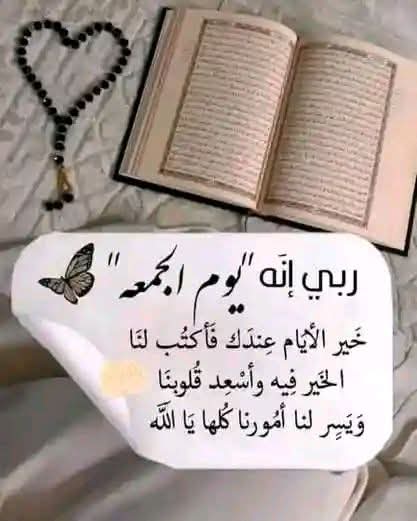 ربي إنَه "يوم الجمعه"
خَير الأيَام عِندَك فَأكتُب لنَا
الخَير فِيه وأسْعِد قُلوبنَا
وَيَسِر لنا أمُورنا كُلها يَا اللَّه